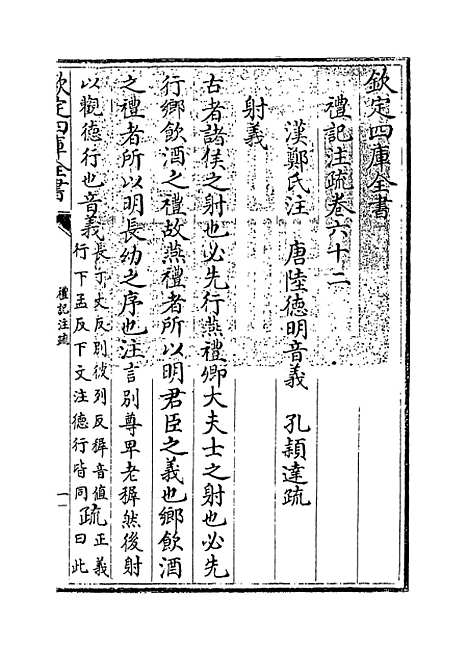 欽定四庫全書
禮記注疏卷六十二
漢鄭氏注　唐陸德明音義　孔穎達疏
射義
古者諸侯之射也必先行燕禮卿大夫士之射也必先
行鄉飲酒之禮故燕禮者所以明君臣之義也鄉飲酒
之禮者所以明長幼之序也注言別尊卑老穉然後射
以觀德行也音義長丁丈反別彼列反穉音值
行下孟反下文注德行皆同疏正義
曰此
欽定四庫全書
禮記注疏
一